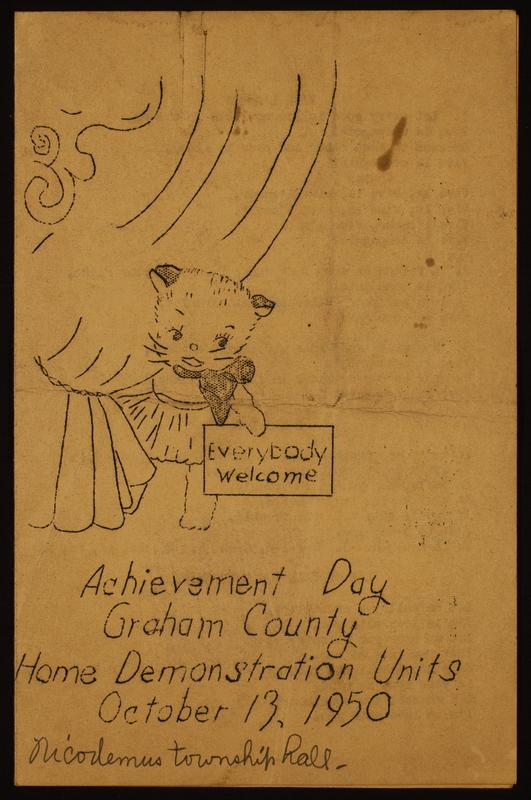 Everybody
Welcome
Achievement Day
Graham County
Home Demonstration Units
October 13, 1950
Nicodemus township hall-